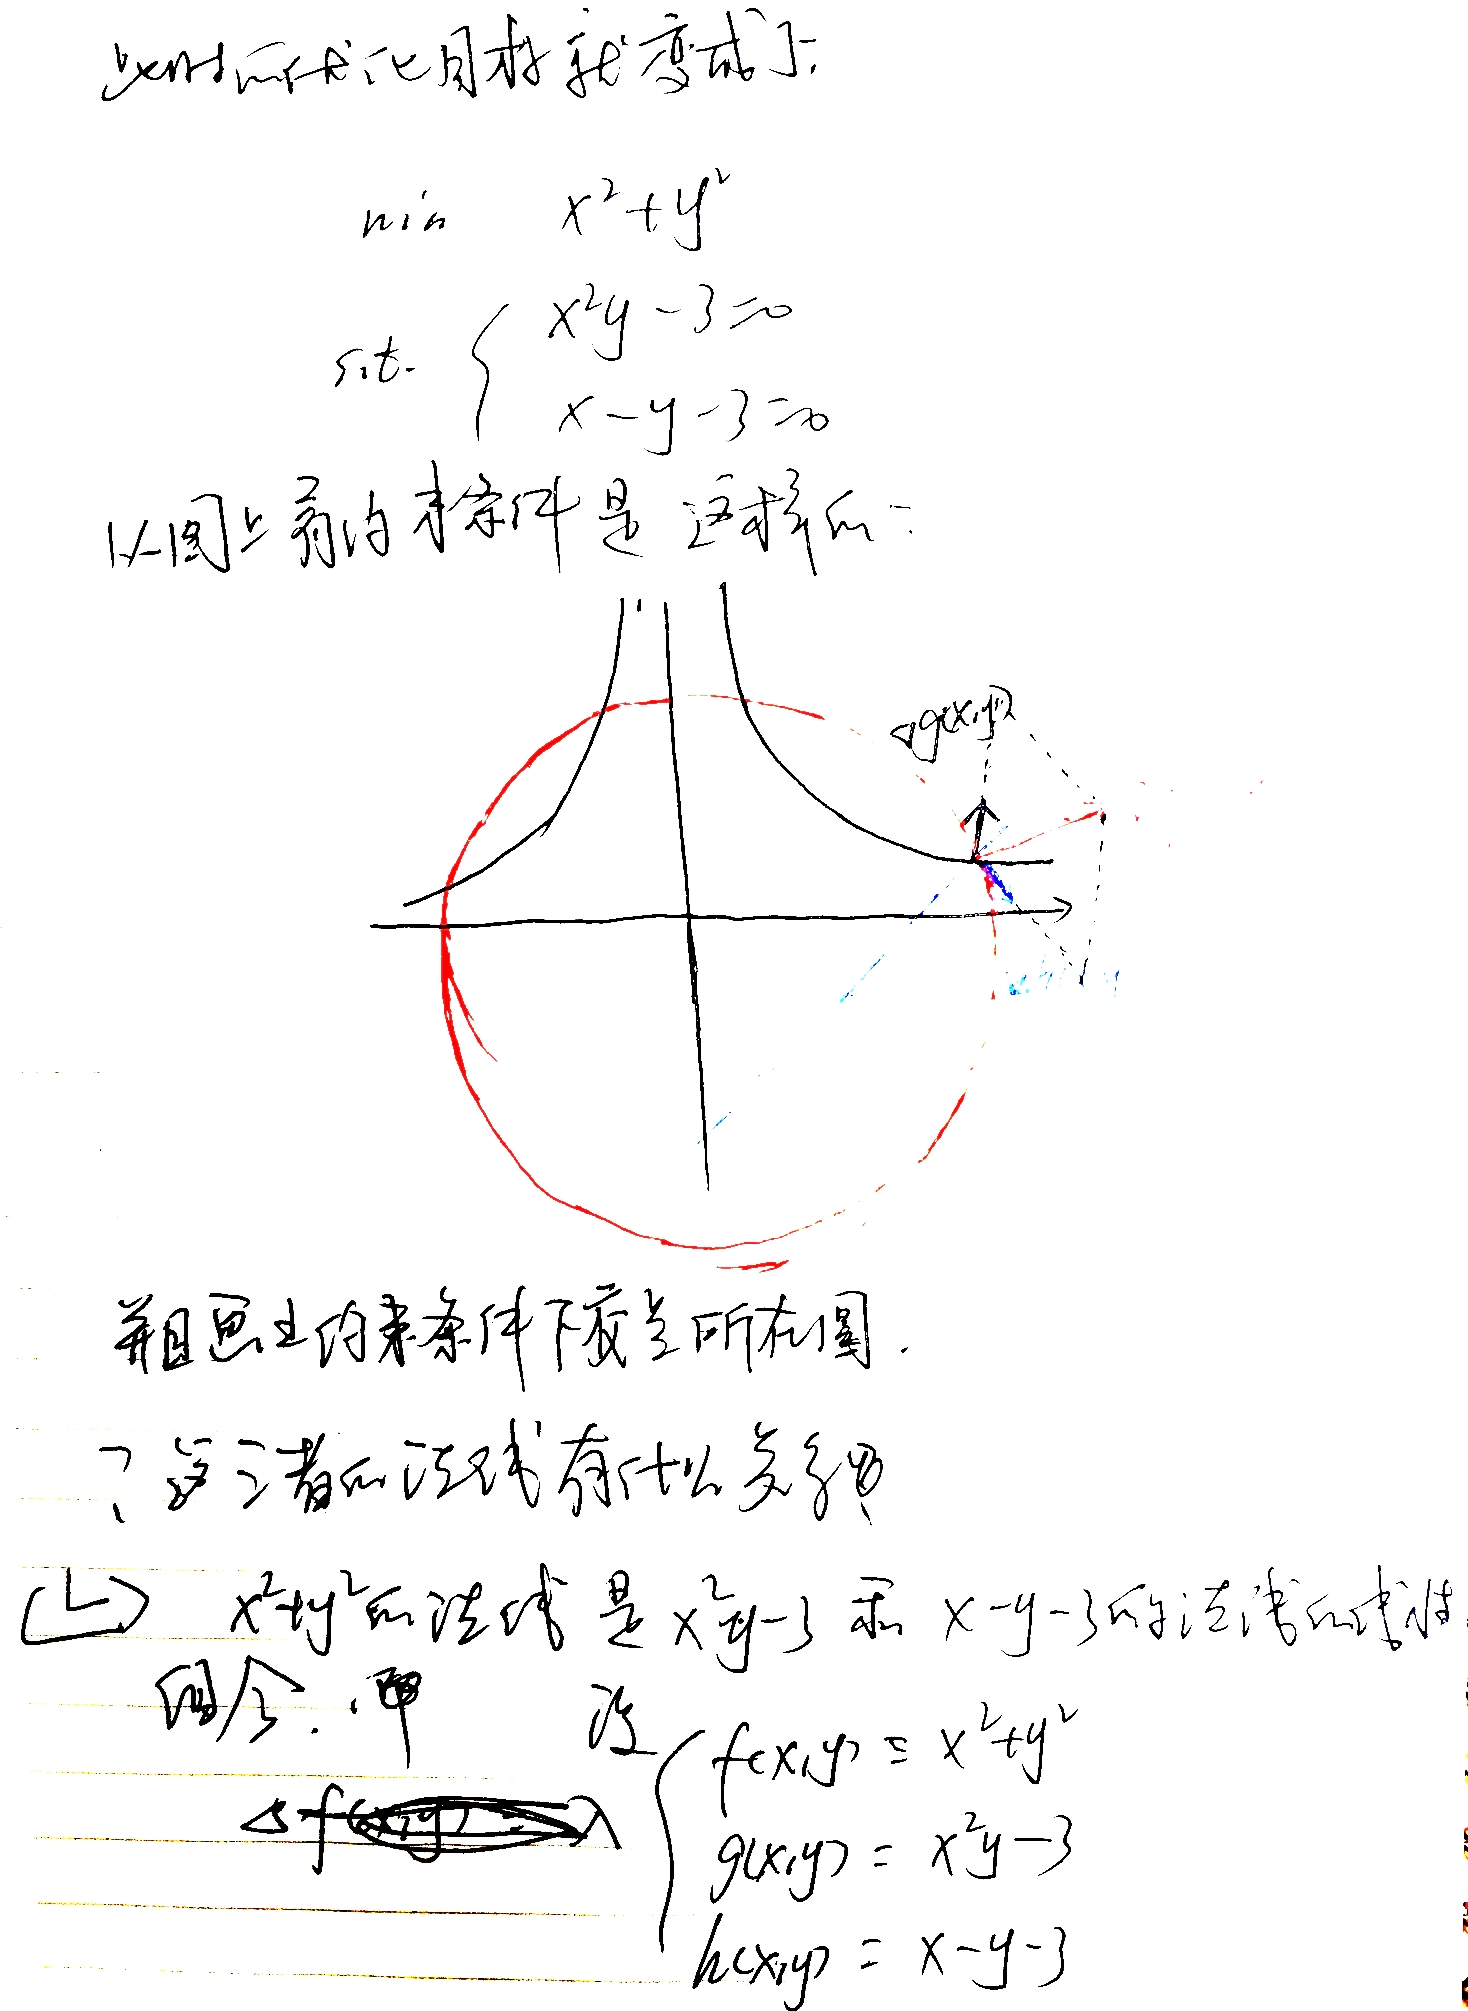 此时的优化目标就变成了:
min x²+y²
s.t. { x²y-3=0
x-y-3=0
从图上看约束条件是这样的:
∇g(x,y)
并且画出约束条件下交点所在圆.
? 这三者的法线有什么关系
x²+y²的法线是x²y-3和x-y-3的法线的线性
组合. 即 设 { f(x,y) = x²+y²
g(x,y) = x²y-3
h(x,y) = x-y-3